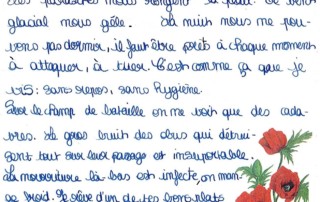 parasites nous rongent la peau. Le vent
glacial nous gèle. La nuit nous ne pou-
vons pas dormir, il faut être prêts à chaque moment
à attaquer, à tuer. C'est comme ça que je
vis : sans repos, sans hygiène.
Sur le champ de bataille on ne voit que des cada-
vres. Le gros bruit des obus qui détrui-
sent tout sur leur passage est insuportable.
La nourriture là bas est infecte, on man-
ge froid. Je rêve d'un de tes bons plats